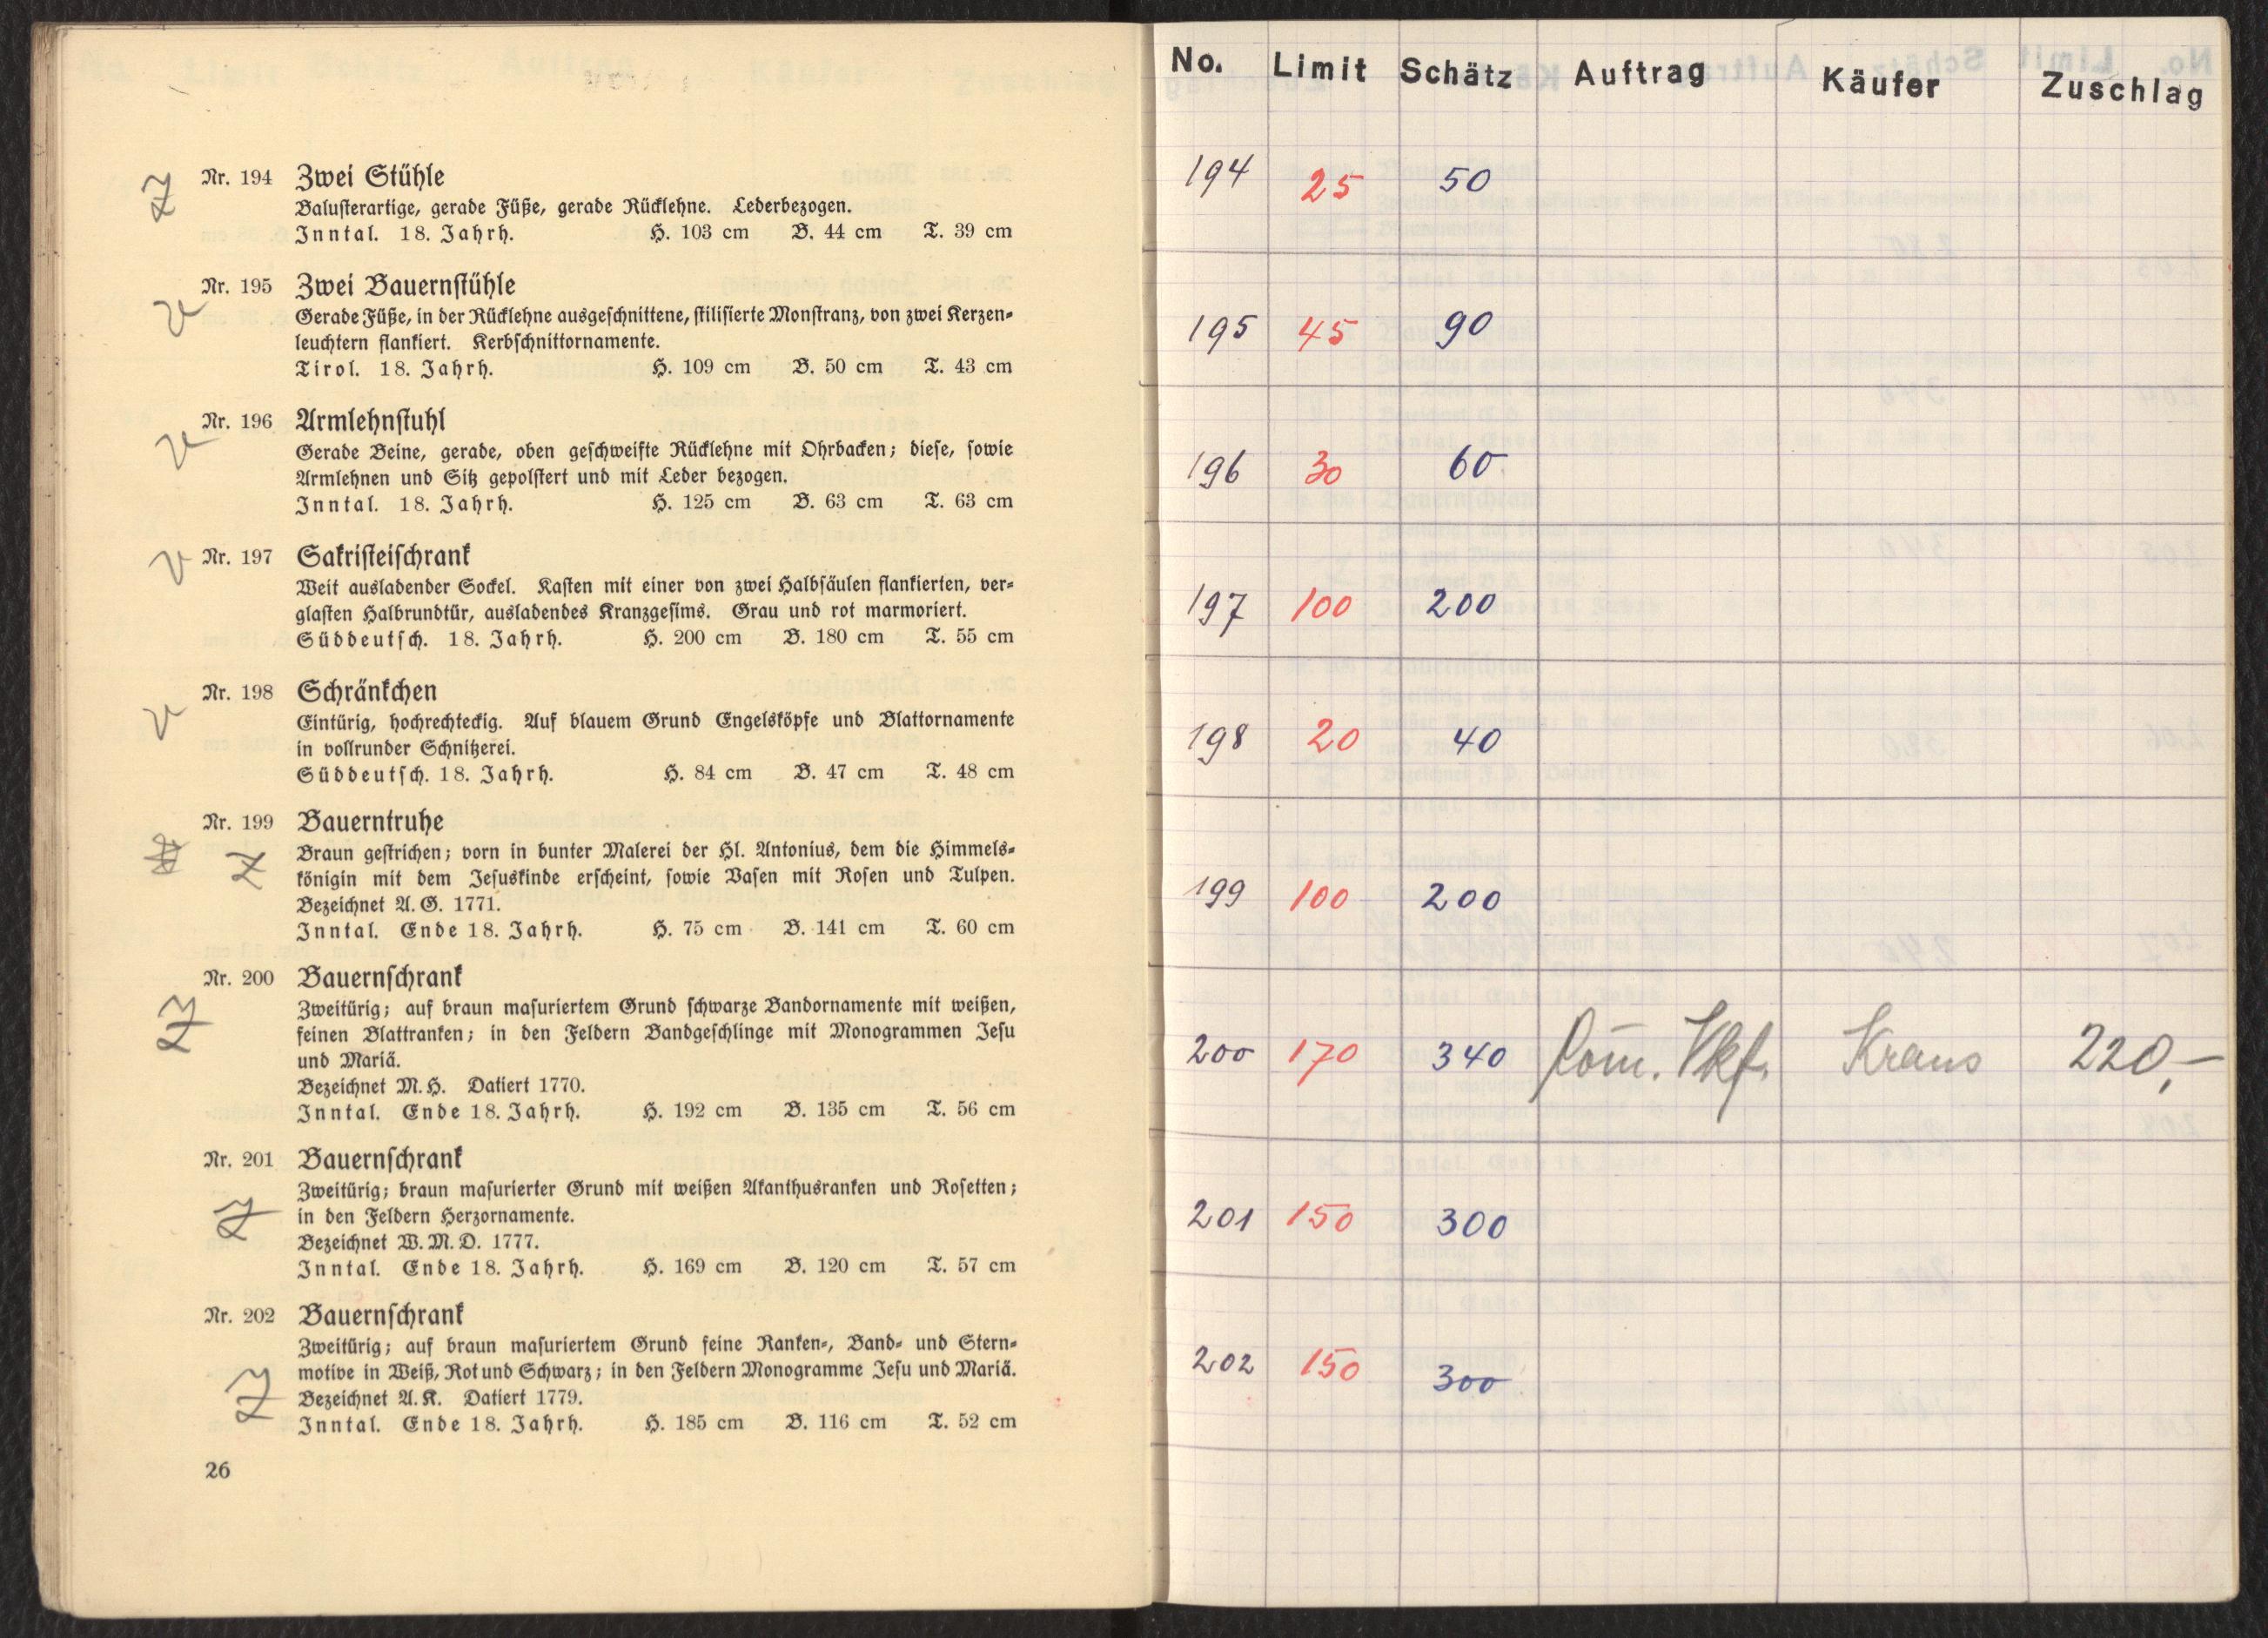 Nr. 194 Zwei Stühle
Balusterartige, gerade Füße, gerade Rücklehne. Lederbezogen.
Inntal. 18. Jahrh. H. 103 cm B. 44 cm T. 39 cm
Nr. 195 Zwei Bauernstühle
Gerade Füße, in der Rücklehne ausgeschnittene, stilisierte Monstranz, von zwei Kerzen-
leuchtern flankiert. Kerbschnittornamente.
Tirol. 18. Jahrh. H. 109 cm B. 50 cm T. 43 cm
Nr. 196 Armlehnstuhl
Gerade Beine, gerade, oben geschweifte Rücklehne mit Ohrbacken; diese, sowie
Armlehnen und Sitz gepolstert und mit Leder bezogen.
Inntal. 18. Jahrh. H. 125 cm B. 63 cm T. 63 cm
Nr. 197 Sakristeischrank
Weit ausladender Sockel. Kasten mit einer von zwei Halbsäulen flankierten, ver-
glasten Halbrundtür, ausladendes Kranzgesims. Grau und rot marmoriert.
Süddeutsch. 18. Jahrh. H. 200 cm B. 180 cm T. 55 cm
Nr. 198 Schränkchen
Eintürig, hochrechteckig. Auf blauem Grund Engelsköpfe und Blattornamente
in vollrunder Schnitzerei.
Süddeutsch. 18. Jahrh. H. 84 cm B. 47 cm T. 48 cm
Nr. 199 Bauerntruhe
Z Braun gestrichen; vorn in bunter Malerei der Hl. Antonius, dem die Himmels-
königin mit dem Jesuskinde erscheint, sowie Vasen mit Rosen und Tulpen.
Bezeichnet A. G. 1771.
Inntal. Ende 18. Jahrh. H. 75 cm B. 141 cm T. 60 cm
Nr. 200 Bauernschrank
Zweitürig; auf braun masuriertem Grund schwarze Bandornamente mit weißen,
feinen Blattranken; in den Feldern Bandgeschlinge mit Monogrammen Jesu
und Mariä.
Bezeichnet M. H. Datiert 1770.
Inntal. Ende 18. Jahrh. H. 192 cm B. 135 cm T. 56 cm
Nr. 201 Bauernschrank
Zweitürig; braun masurierter Grund mit weißen Akanthusranken und Rosetten;
in den Feldern Herzornamente.
Bezeichnet W. M. D. 1777.
Inntal. Ende 18. Jahrh. H. 169 cm B. 120 cm T. 57 cm
Nr. 202 Bauernschrank
Zweitürig; auf braun masuriertem Grund feine Ranken-, Band- und Stern-
motive in Weiß, Rot und Schwarz; in den Feldern Monogramme Jesu und Mariä.
Bezeichnet A. K. Datiert 1779.
Inntal. Ende 18. Jahrh. H. 185 cm B. 116 cm T. 52 cm
26
No. Limit Schätz Auftrag Käufer Zuschlag
194 25 50
195 45 90
196 30 60
197 100 200
198 20 40
199 100 200
200 170 340 Kraus 220,—
201 150 300
202 150 300